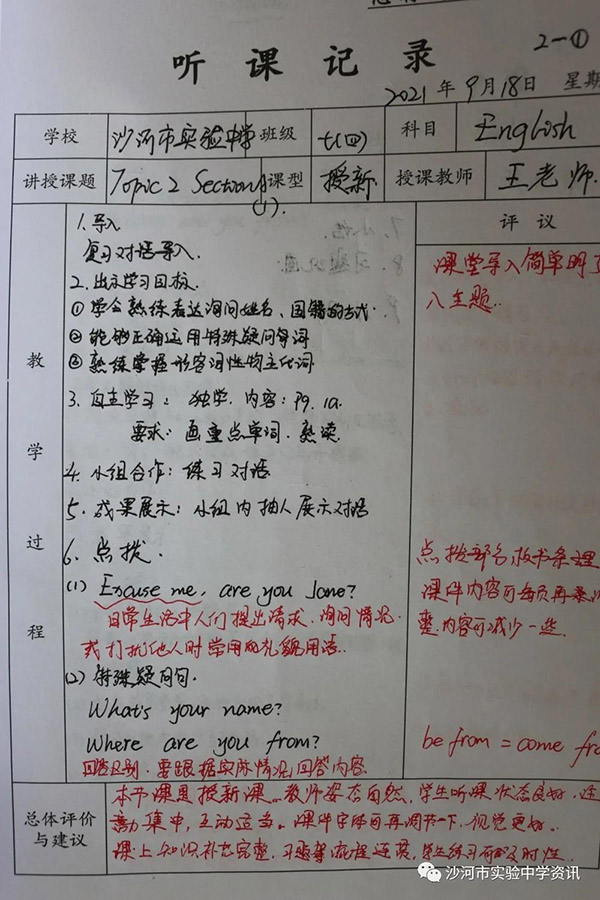 2-①
听课记录
2021年9月18日 星期
学校 沙河市实验中学 班级 七(四) 科目 English
讲授课题 Topic 2 Section A (1). 课型 授新 授课教师 王老师
教学过程
1. 导入
复习对话导入.
2. 出示学习目标
① 学会熟练表达询问姓名、国籍的方式.
② 能够正确运用特殊疑问词
③ 熟练掌握形容词性物主代词
3. 自主学习: 独学. 内容: P9. 1a.
要求: 画重点单词. 熟读.
4. 小组合作: 练习对话
5. 成果展示: 小组内抽人展示对话
6. 点拨.
(1) Excuse me, are you Jane?
日常生活中人们提出请求. 询问情况.
或打扰他人时常用的礼貌用语.
(2) 特殊疑问句.
What's your name?
Where are you from?
回答区别. 要跟据实际情况回答内容.
评议
课堂导入简单明了
入主题.
点拨部分, 板书条理
课件内容可每页再
整. 内容可减少一些.
be from = come fro
总体评价与建议
本节课是授新课. 教师姿态自然, 学生听课状态良好.
集中, 互动适当. 课件字体可再调节一下. 视觉更好.
课上知识补充完整, 习题等流程连贯, 学生练习有及时性.
沙河市实验中学资讯